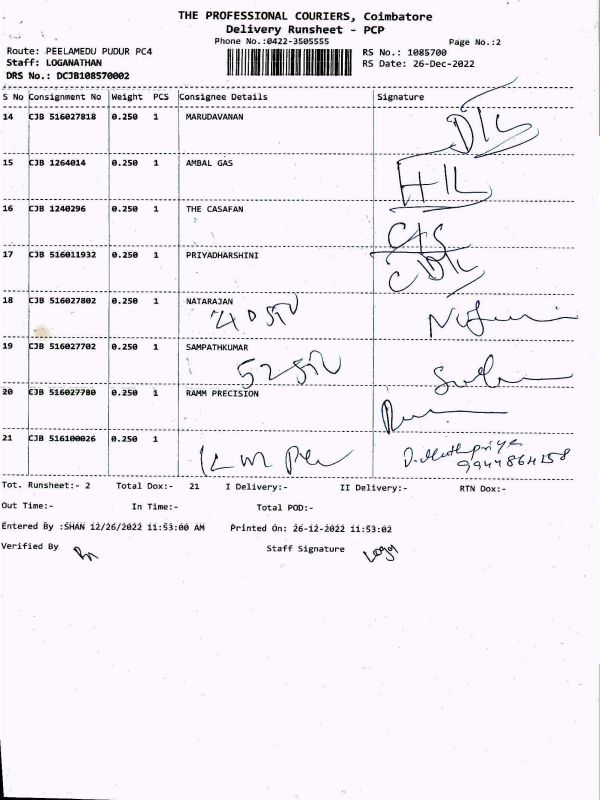 THE PROFESSIONAL COURIERS, Coimbatore
Delivery Runsheet - PCP
Phone No.:0422-3505555 Page No.:2
Route: PEELAMEDU PUDUR PC4 RS No.: 1085700
Staff: LOGANATHAN RS Date: 26-Dec-2022
DRS No.: DCJB108570002
S No Consignment No Weight PCS Consignee Details Signature
14 CJB 516027818 0.250 1 MARUDAVANAN
15 CJB 1264014 0.250 1 AMBAL GAS
16 CJB 1240296 0.250 1 THE CASAFAN CAS
17 CJB 516011932 0.250 1 PRIYADHARSHINI
18 CJB 516027802 0.250 1 NATARAJAN
19 CJB 516027702 0.250 1 SAMPATHKUMAR
20 CJB 516027780 0.250 1 RAMM PRECISION
21 CJB 516100026 0.250 1
9944864158
Tot. Runsheet:- 2 Total Dox:- 21 I Delivery:- II Delivery:- RTN Dox:-
Out Time:- In Time:- Total POD:-
Entered By :SHAN 12/26/2022 11:53:00 AM Printed On: 26-12-2022 11:53:02
Verified By Staff Signature